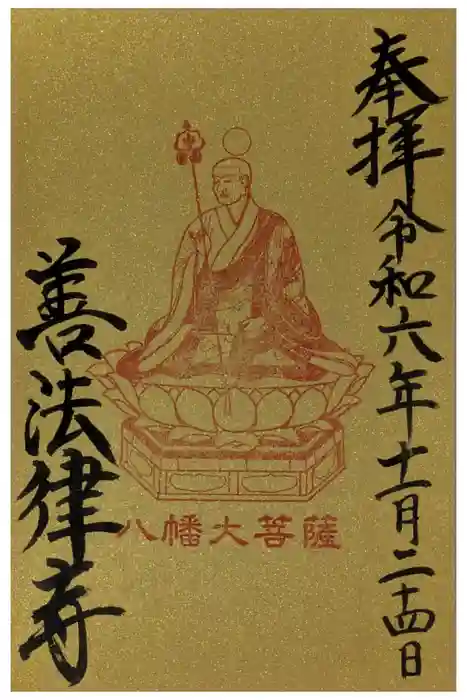 奉拝 令和六年十一月二十四日
八幡大菩薩
善法律寺